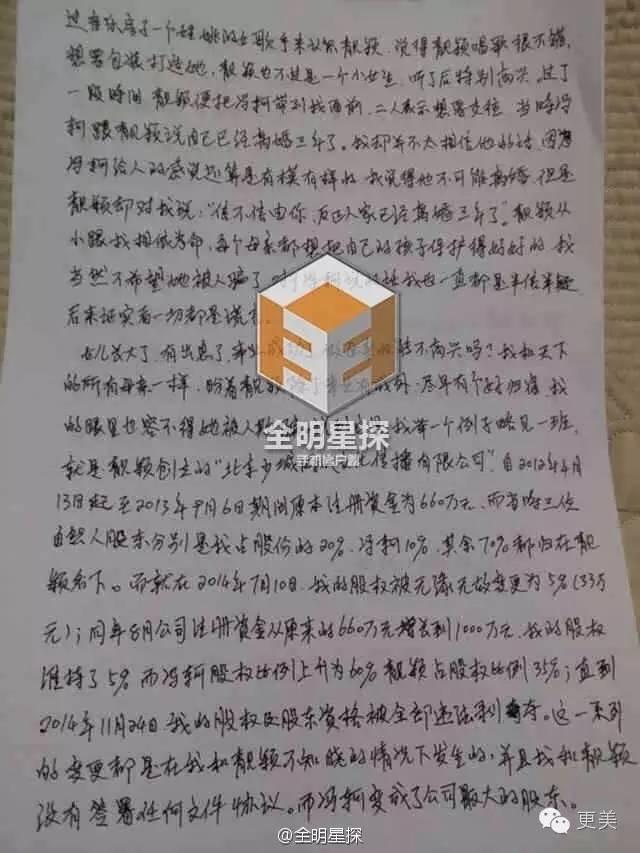 过音乐房了一个姓姚的女歌手来认识靓颖，说得靓颖唱歌很不错，
想署包装打造她，靓颖也不过是一个小女生，听了后特别高兴。过了
一段时间靓颖便把冯柯带到我面前，二人表示想署交往，当时冯
柯跟靓颖说自己已经离婚三年了。我却并不太相信他的话，因为
冯柯给人的感觉还算是有模有样的，我觉得他不可能离婚，但是
靓颖却对我说：“信不信由你，反正人家已经离婚三年了”。靓颖从
小跟我相依为命，每个母亲都想把自己的孩子保护得好好的，我
当然不希望她被人骗了，冯柯说的话我也一直都是半信半疑
后来证实着一切都是谎言
女儿长大了，有出息了，事业成功了，能不高兴吗？我和天下
的所有母亲一样，盼着靓颖除了事业有成外，尽早有个好归宿，我
的眼里也容不得她被人欺，我举一个例子略见一班，
就是靓颖创立的“北京少城时代文化传播有限公司”，自2012年4月
13日起至2013年9月6日期间原本注册资金为660万元，而当时三位
自然人股东分别是我占股份的20%，冯柯10%，其余70%都归在靓
颖名下。而就在2014年7月10日，我的股权被无缘无故变更为5%（33万
元）；同年8月公司注册资金从原来的660万元增长到1000万元，我的股权
维持了5%而冯轲股权比例上升为60%靓颖占股权比例35%；直到
2014年11月24日，我的股权及股东资格被全部违法剥夺。这一系列
的变更都是在我和靓颖不知晓的情况下发生的，并且我和靓颖
没有签署任何文件协议。而冯轲变成了公司最大的股东。
全明星探
手机客户端
@全明星探
更美